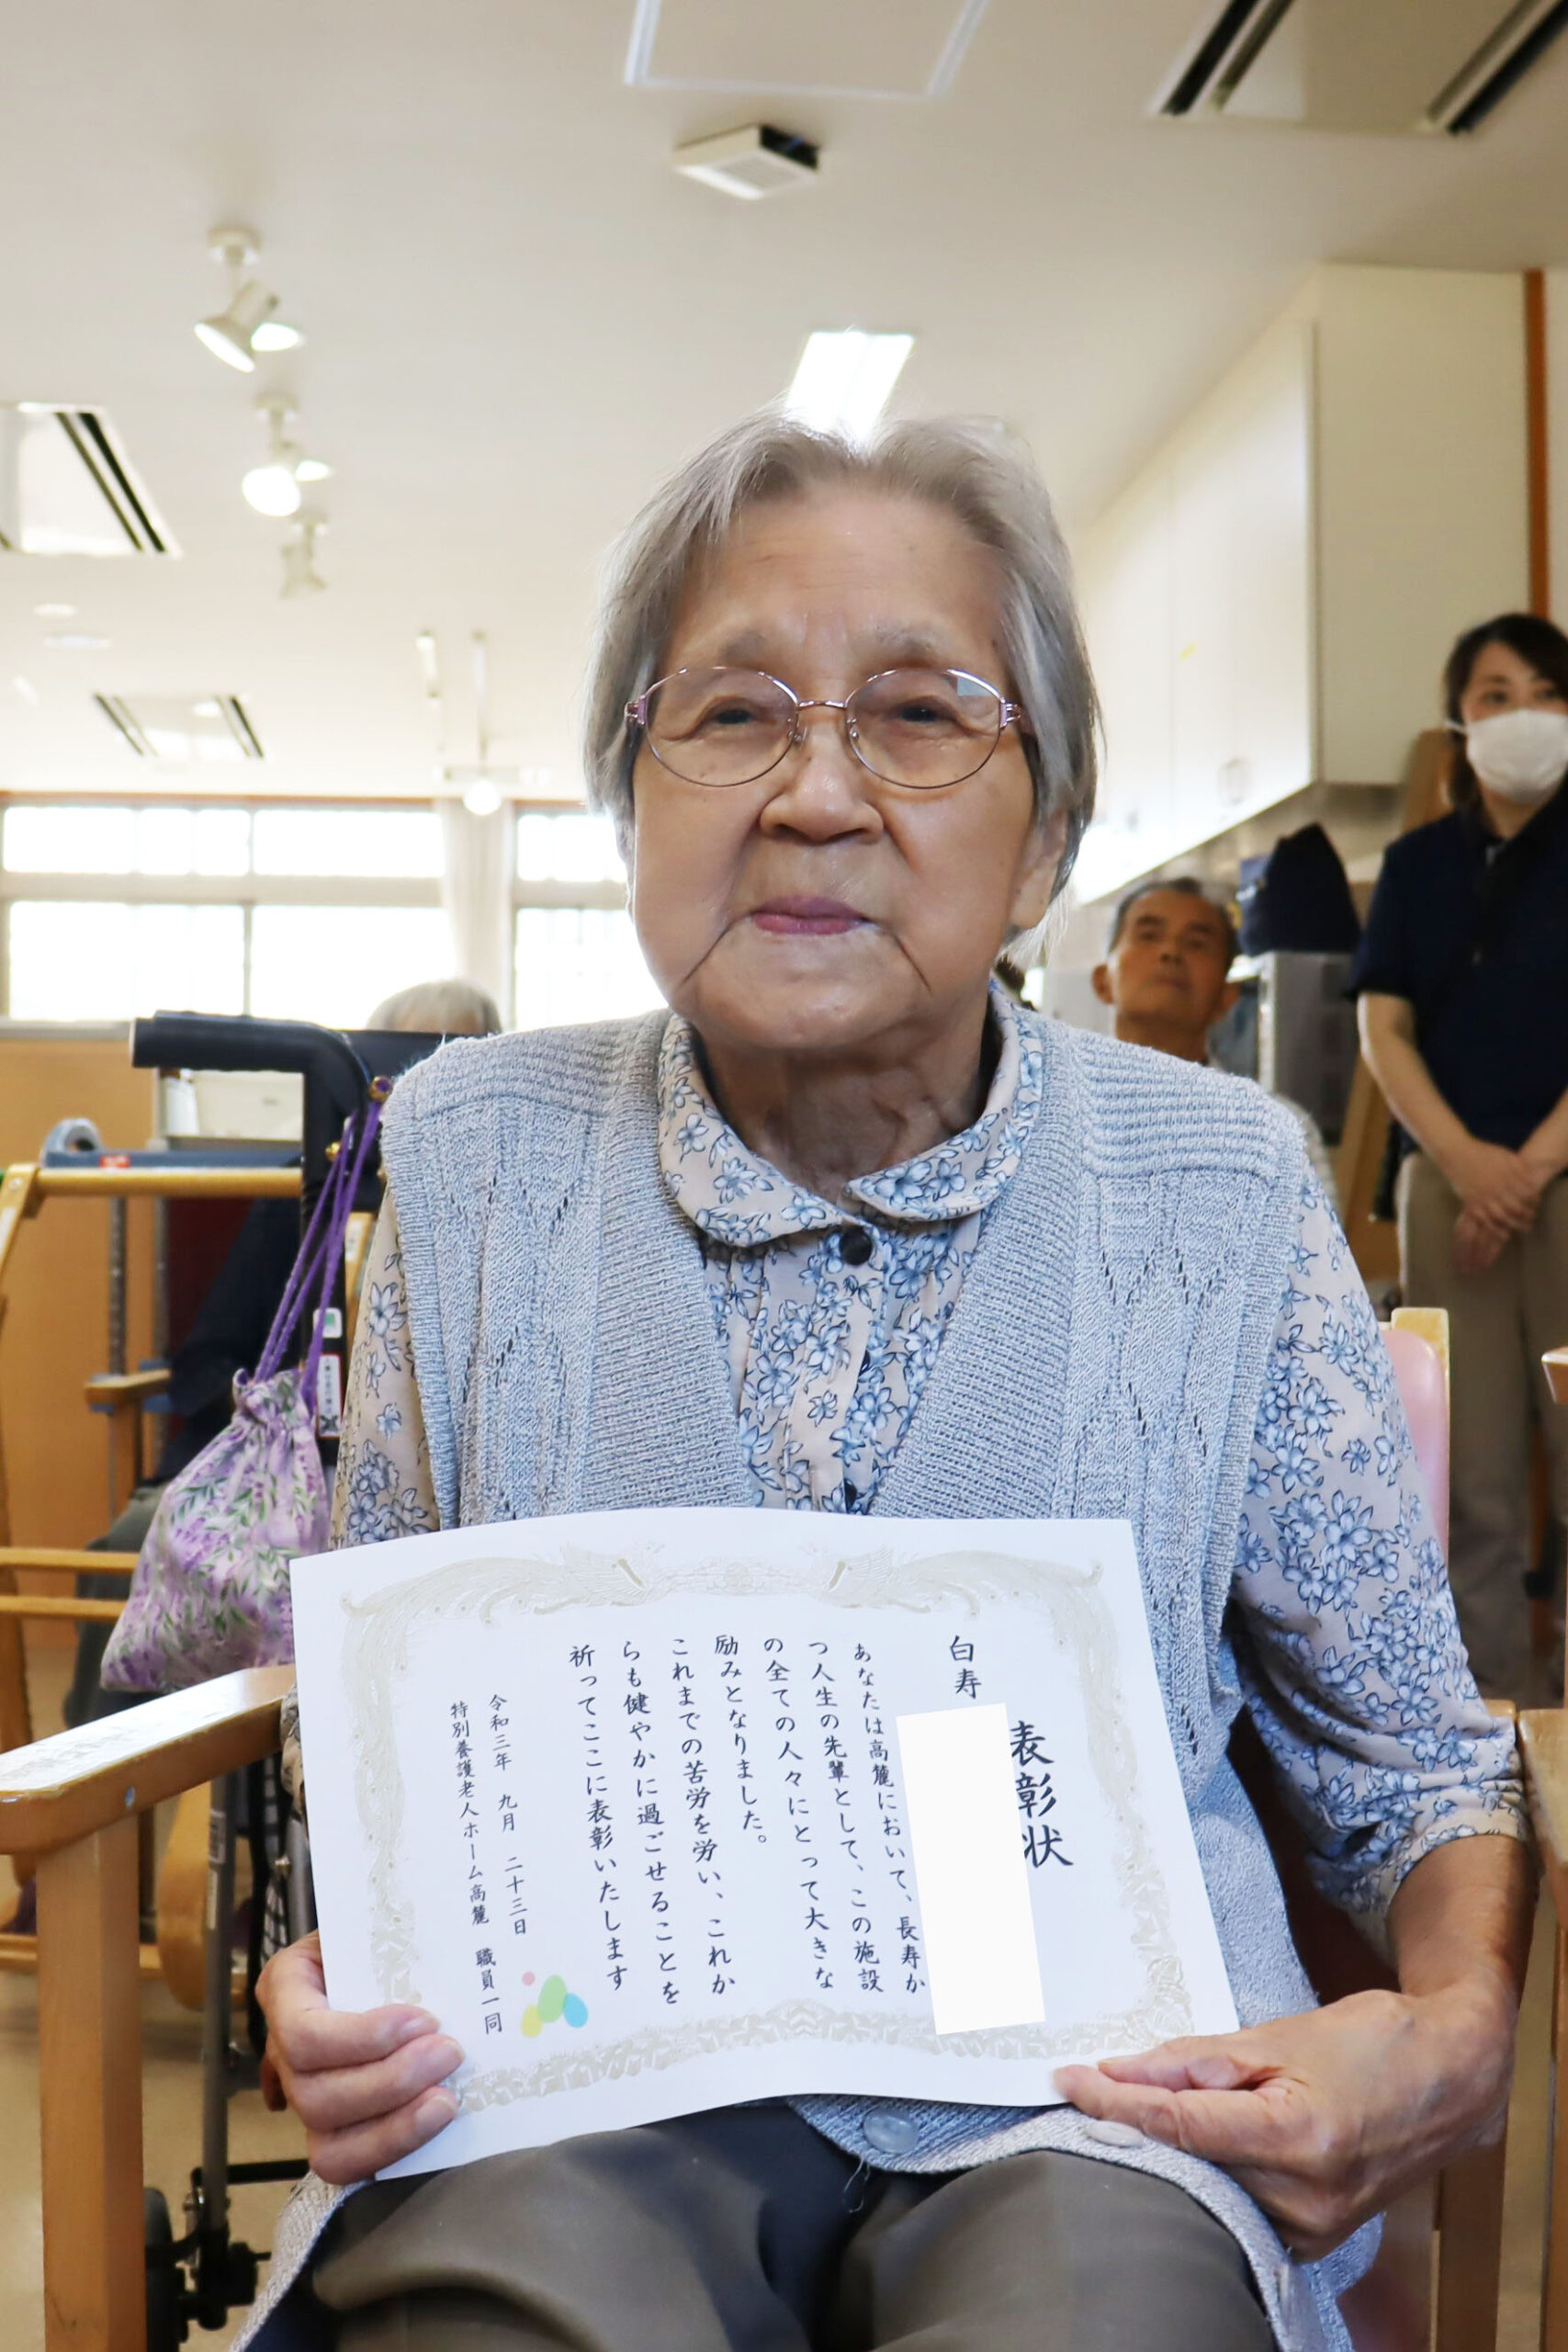 表彰状
白寿
あなたは高麓において、長寿か
つ人生の先輩として、この施設
の全ての人々にとって大きな
励みとなりました。
これまでの苦労を労い、これか
らも健やかに過ごせることを
祈ってここに表彰いたします
令和三年 九月 二十三日
特別養護老人ホーム高麓 職員一同